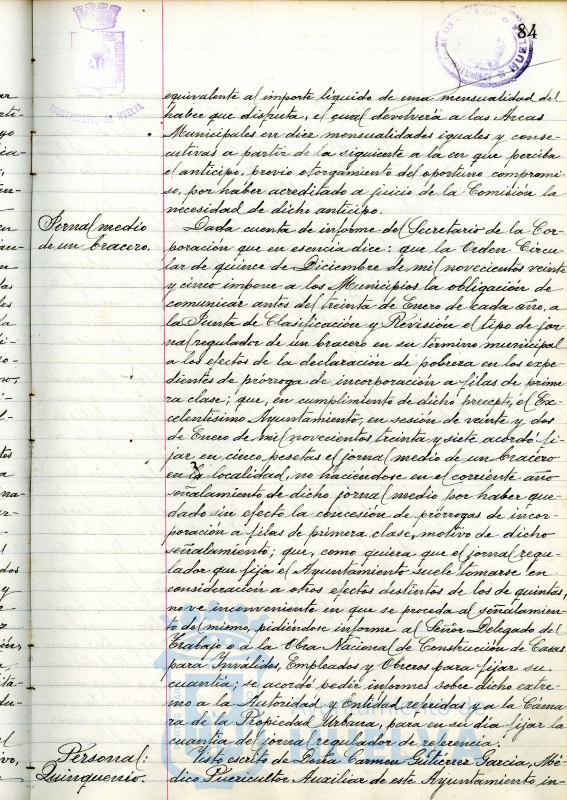 84
AYUNTAMIENTO DE HUELVA
equivalente al importe líquido de una mensualidad del
haber que disfruta, el cual devolverá a las Arcas
Municipales en diez mensualidades iguales y conse-
cutivas a partir de la siguiente a la en que perciba
el anticipo, previo otorgamiento del oportuno compromi-
so, por haber acreditado a juicio de la Comisión la
necesidad de dicho anticipo.
Jornal medio
de un bracero.
Dada cuenta de informe del Secretario de la Cor-
poración que en esencia dice: que la Orden Circu-
lar de quince de Diciembre de mil novecientos veinte
y cinco impone a los Municipios la obligación de
comunicar antes del treinta de Enero de cada año, a
la Junta de Clasificación y Revisión el tipo de jor-
nal regulador de un bracero en su término municipal
a los efectos de la declaración de pobreza en los expe-
dientes de prórroga de incorporación a filas de prime-
ra clase; que, en cumplimiento de dicho precepto, el Ex-
celentísimo Ayuntamiento, en sesión de veinte y dos
de Enero de mil novecientos treinta y siete acordó fi-
jar en cinco pesetas el jornal medio de un bracero
en la localidad, no haciéndose en el corriente año
señalamiento de dicho jornal medio por haber que-
dado sin efecto la concesión de prórrogas de incor-
poración a filas de primera clase, motivo de dicho
señalamiento; que, como quiera que el jornal regu-
lador que fija el Ayuntamiento suele tomarse en
consideración a otros efectos distintos de los de quintas,
no ve inconveniente en que se proceda al señalamien-
to del mismo, pidiéndose informe al Señor Delegado del
Trabajo o a la Obra Nacional de Construcción de Casas
para Inválidos, Empleados y Obreros para fijar su
cuantía; se acordó pedir informes sobre dicho extre-
mo a la Autoridad y Entidad referidas y a la Cáma-
ra de la Propiedad Urbana, para en su día fijar la
cuantía del jornal regulador de referencia.
Personal:
Quinquenio.
Visto escrito de Doña Carmen Gutiérrez García, Mé-
dico Puericultor Auxiliar de este Ayuntamiento in-
HUELVA